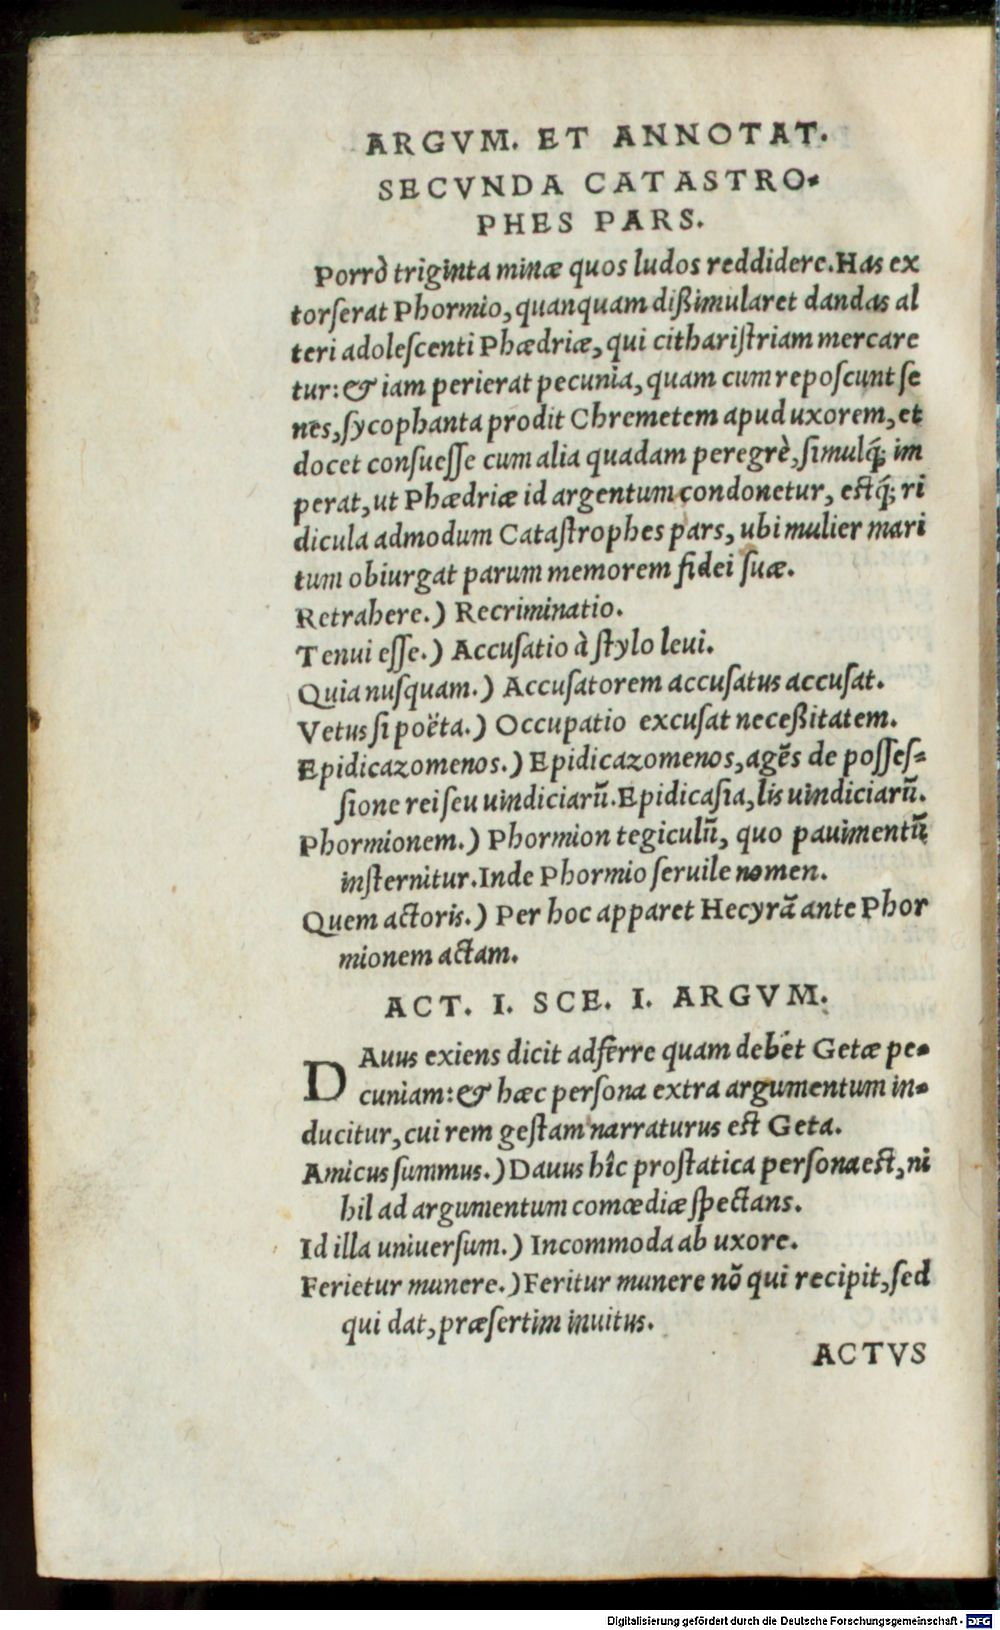 ARGVM. ET ANNOTAT.
SECVNDA CATASTRO-
PHES PARS.
Porrò triginta minæ quos ludos reddidere. Has ex
torserat Phormio, quanquam dißimularet dandas al
teri adolescenti Phædriæ, qui citharistriam mercare
tur: & iam perierat pecunia, quam cum reposcunt se
nes, sycophanta prodit Chremetem apud uxorem, et
docet consuesse cum alia quadam peregrè, simulq́; im
perat, ut Phædriæ id argentum condonetur, estq́; ri
dicula admodum Catastrophes pars, ubi mulier mari
tum obiurgat parum memorem fidei suæ.
Retrahere.) Recriminatio.
Tenui esse.) Accusatio à stylo leui.
Quia nusquam.) Accusatorem accusatus accusat.
Vetus si poëta.) Occupatio excusat neceßitatem.
Epidicazomenos.) Epidicazomenos, agẽs de posses-
sione rei seu uindiciarũ. Epidicasia, lis uindiciarũ.
Phormionem.) Phormion tegiculũ, quo pauimentũ
insternitur. Inde Phormio seruile nomen.
Quem actoris.) Per hoc apparet Hecyrã ante Phor
mionem actam.
ACT. I. SCE. I. ARGVM.
DAuus exiens dicit adferre quam debet Getæ pe-
cuniam: & hæc persona extra argumentum in-
ducitur, cui rem gestam narraturus est Geta.
Amicus summus.) Dauus hîc prostatica persona est, ni
hil ad argumentum comœdiæ spectans.
Id illa uniuersum.) Incommoda ab uxore.
Ferietur munere.) Feritur munere nõ qui recipit, sed
qui dat, præsertim inuitus.
ACTVS
Digitalisierung gefördert durch die Deutsche Forschungsgemeinschaft - DFG